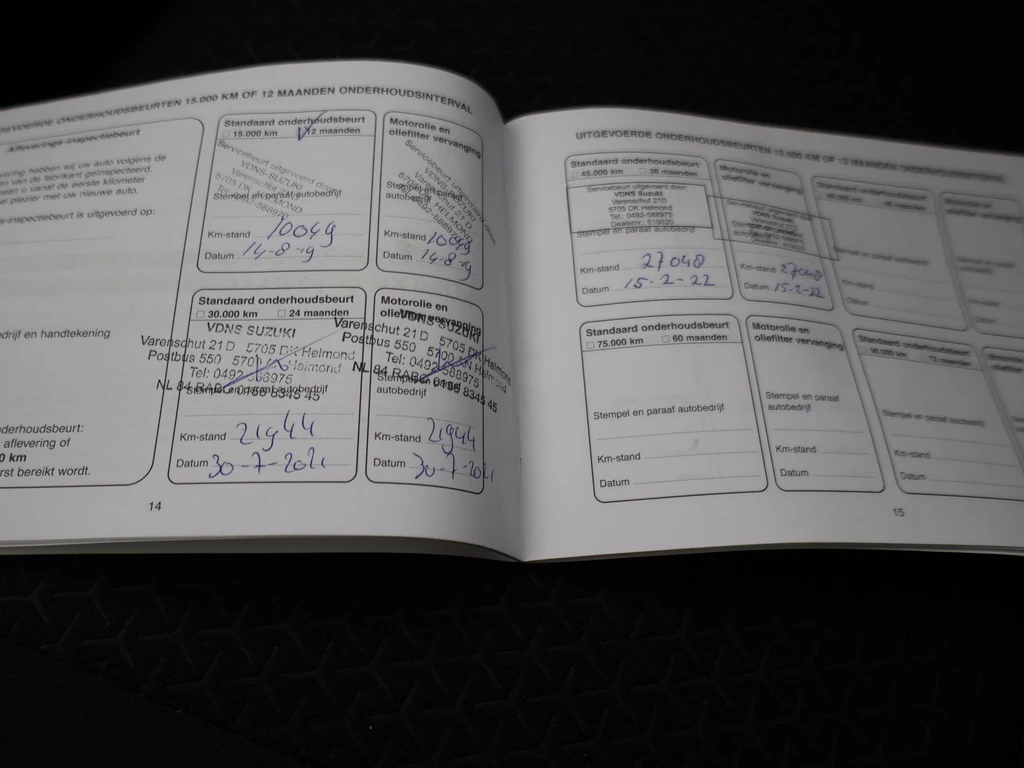 EVOERDE ONDERHOUDSBEURTEN 15.000 KM OF 12 MAANDEN ONDERHOUDSINTERVAL
Afleverings-inspectiebeurt
ering hebben wij uw auto volgens de
en van de fabrikant geïnspecteerd.
een u vanaf de eerste kilometer
el plezier met uw nieuwe auto.
s-inspectiebeurt is uitgevoerd op:
drijf en handtekening
derhoudsbeurt:
aflevering of
0 km
rst bereikt wordt.
Standaard onderhoudsbeurt
15.000 km 12 maanden
Servicebeurt uitgevoerd door:
VDNS-SUZUKI
Varenschut 21D
5705 DK HELMOND
0492-588975
Stempel en paraaf autobedrijf
Km-stand 10049
Datum 14-8-19
Motorolie en
oliefilter vervanging
Servicebeurt uitgevoerd door:
VDNS-SUZUKI
Varenschut 21D
Stempel en paraaf
autobedrijf
Km-stand 10049
Datum 14-8-19
Standaard onderhoudsbeurt
30.000 km 24 maanden
VDNS SUZUKI
Varenschut 21 D 5705 DK Helmond
Postbus 550 5700 AN Helmond
Tel: 0492-588975
NL 84 RABO 0156 8345 45
Stempel en paraaf autobedrijf
Km-stand 21944
Datum 30-7-2021
Motorolie en
oliefilter vervanging
VDNS SUZUKI
Varenschut 21 D 5705 DK Helmond
Postbus 550 5700 AN Helmond
Tel: 0492-588975
NL 84 RABO 0156 8345 45
Stempel en paraaf
autobedrijf
Km-stand 21944
Datum 30-7-2021
14
UITGEVOERDE ONDERHOUDSBEURTEN 15.000 KM OF 12 MAANDEN ONDERHOUDSINTERVAL
Standaard onderhoudsbeurt
45.000 km 36 maanden
Servicebeurt uitgevoerd door:
VDNS Suzuki
Varenschut 21D
5705 DK Helmond
Tel.: 0492-588975
Dealernr.: 519020
Stempel en paraaf autobedrijf
Km-stand 27048
Datum 15-2-22
Motorolie en
oliefilter vervanging
Servicebeurt uitgevoerd door:
VDNS Suzuki
Km-stand 27048
Datum 15-2-22
Km-stand
Datum
Standaard onderhoudsbeurt
75.000 km 60 maanden
Stempel en paraaf autobedrijf
Km-stand
Datum
Motorolie en
oliefilter vervanging
Stempel en paraaf
autobedrijf
Km-stand
Datum
Standaard onderhoudsbeurt
90.000 km 72 maanden
Stempel en paraaf autobedrijf
Km-stand
Datum
15